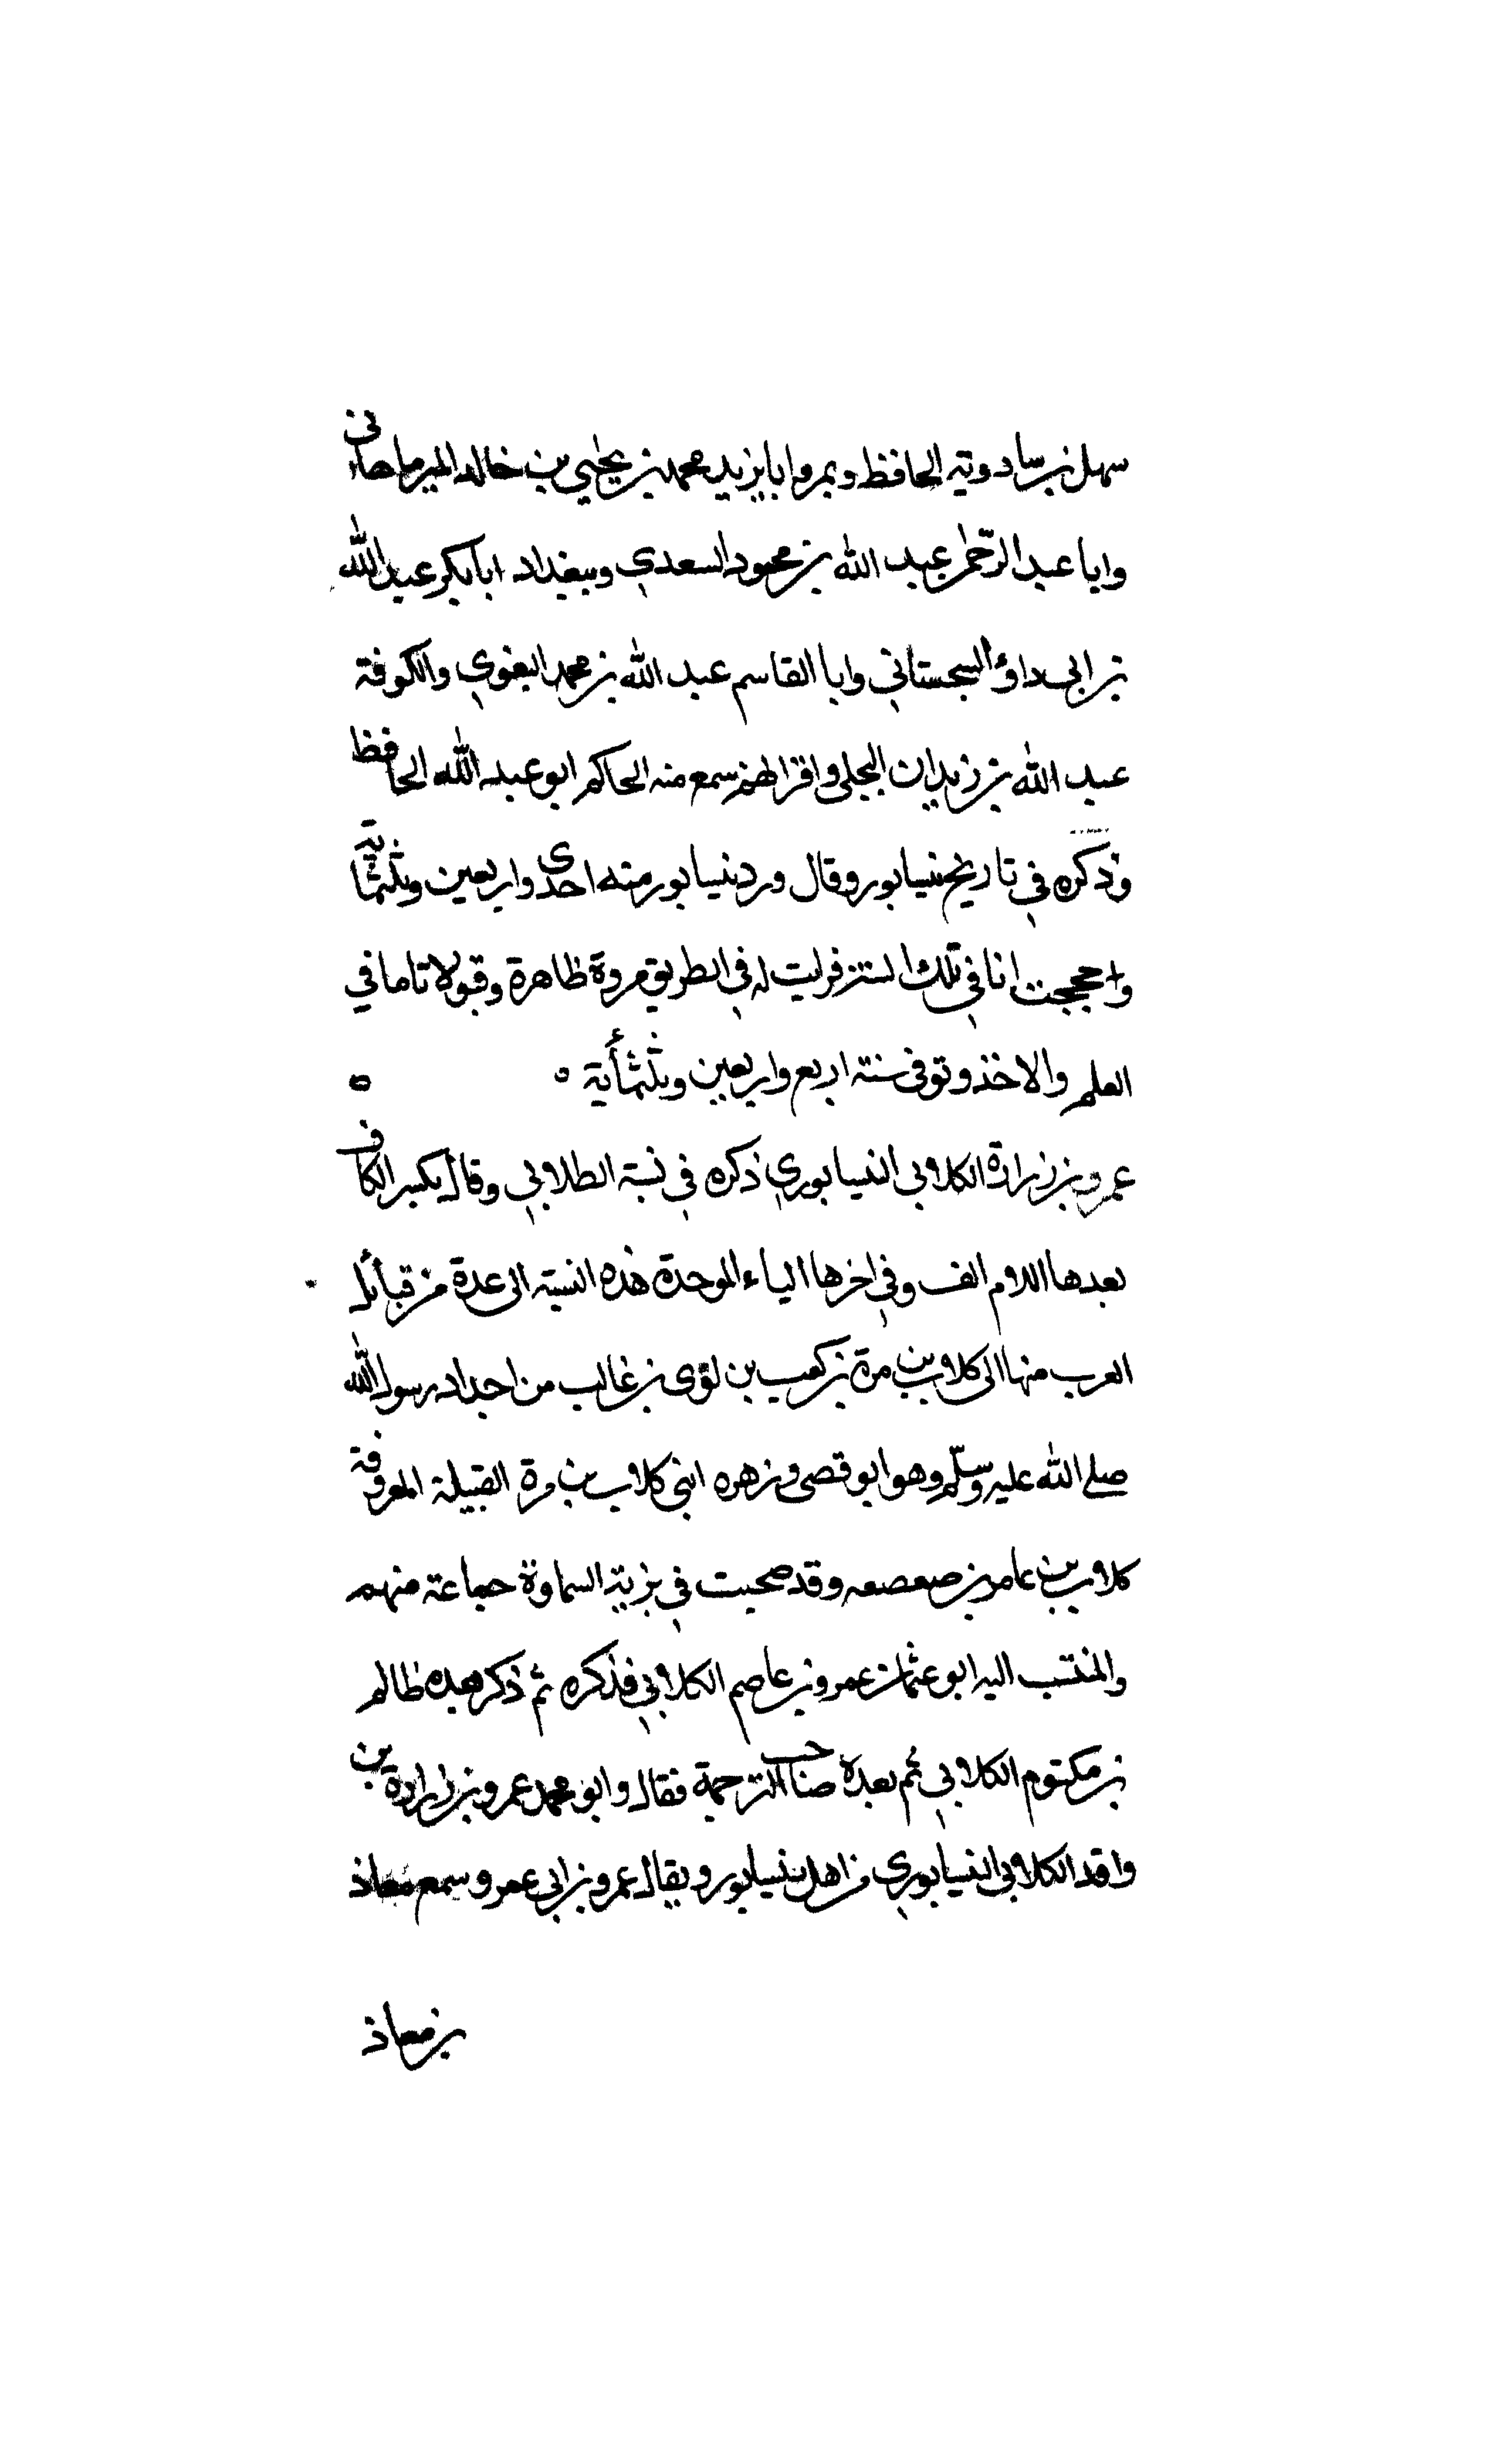 سهل بن شادويه الحافظ وبمرو ابا يزيد محمد بن يحيى بن خالد الميرماهاني
وابا عبد الرحمن عبد الله بن محمود السعدي وببغداد ابا بكر عبد الله
بن ابي داؤد السجستاني وابا القاسم عبد الله بن محمد البغوي والكوفة
عبد الله بن زيدان البجلي واقرانهم سمع منه الحاكم ابو عبد الله الحافظ
وذكره في تاريخ نيسابور وقال ورد نيسابور سنه احدى واربعين وثلثمائة
واحججت انا في تلك السنة فرايت له في الطريق مروة ظاهرة وقبولا تاما في
العلم والاخذ وتوفى سنة اربع واربعين وثلثمأية ٥ ٥
عمرو بن زرارة الكلابي النيسابوري ذكره في نسبة الطلابي وقال بكسر الكاف
بعدها اللام الف وفي اخرها الياء الموحدة هذه النسبة الى عدة من قبائل
العرب منها الى كلاب بن مرة بن كعب بن لؤى بن غالب من اجداد رسول الله
صلى الله عليه وسلم وهو ابو قصى وزهره ابنى كلاب بن مرة القبيلة المعروفة
كلاب بن عامر بن صعصعه وقد صحبت في برية السماوة جماعة منهم
والمنتسب اليه ابو عثمان عمرو بن عاصم الكلابي فذكره ثم ذكر بعده ظالم
بن مكتوم الكلابي ثم بعده صاحب الترجمة فقال وابو محمد عمرو بن زرارة بن
واقد الكلابي النيسابوري من اهل نيسابور ويقال عمرو بن ابي عمرو سمع معاذ
بن معاذ